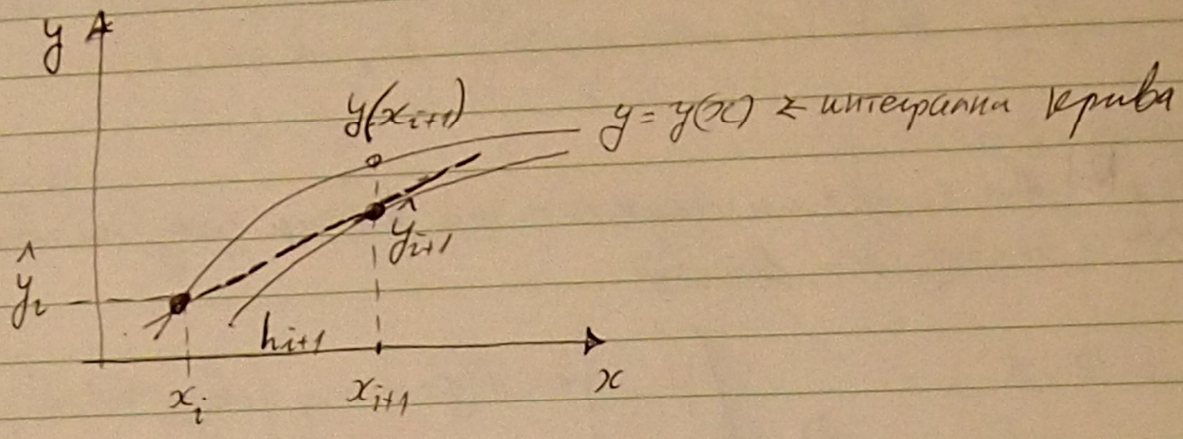 y
y(x_{i+1})
y = y(x) ≤ интегрални крива
ŷ_{i+1}
ŷ_i
h_{i+1}
x_i
x_{i+1}
x